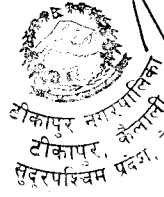 टीकापुर नगरपालिका
टीकापुर, कैलाली
सुदूरपश्चिम प्रदेश,